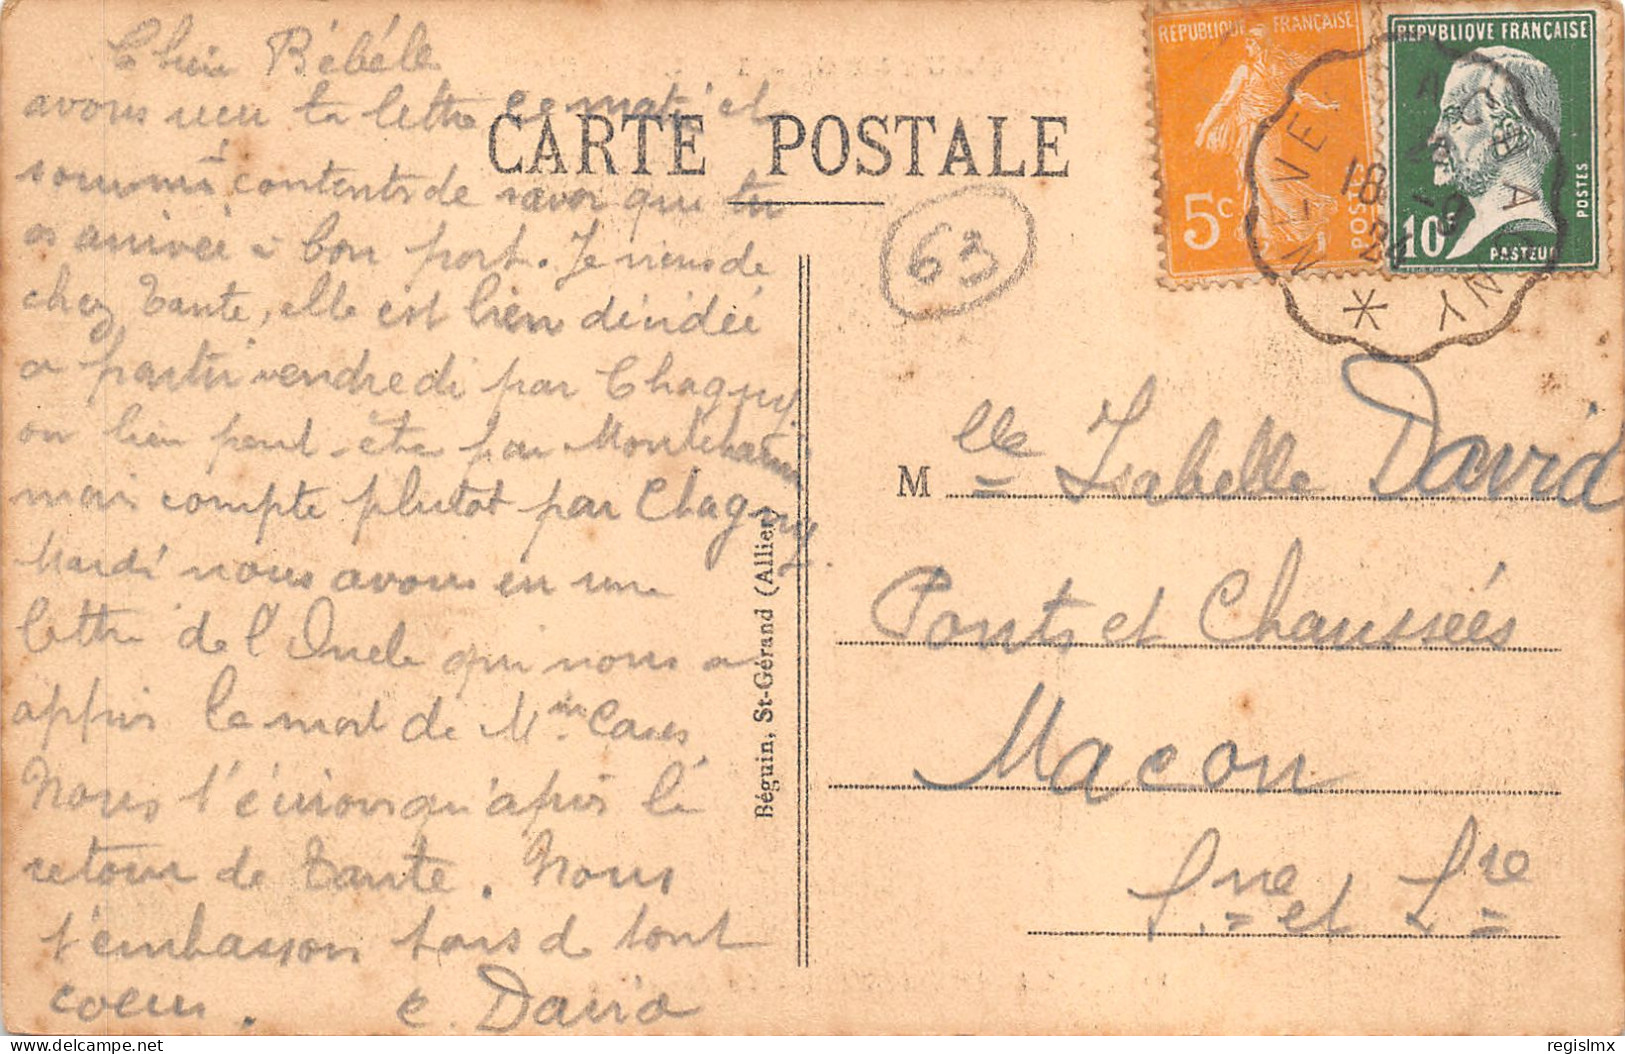 Chère Bébelle
avons reçu ta lettre ce matin et
sommes contents de savoir que tu
es arrivée à bon port. Je viens de
chez Tante, elle est bien décidée
a partir vendredi par Chagny
ou bien peut-être par Montchanin
mais compte plutot par Chagny.
Mardi nous avons eu une
lettre de l'Oncle qui nous a
appris la mort de Mme
Nous t'écrirons qu'après le
retour de Tante. Nous
t'embrassons tous de tout
coeur. C. David
CARTE POSTALE
63
REPUBLIQUE FRANÇAISE
5c
POSTES
REPVBLIQVE FRANÇAISE
10c
POSTES
PASTEUR
18 -9
24
Béguin, St-Gérand (Allier)
Mlle Isabelle David
Ponts et Chaussées
Macon
Sne et Lre
regislmx
delcampe.net